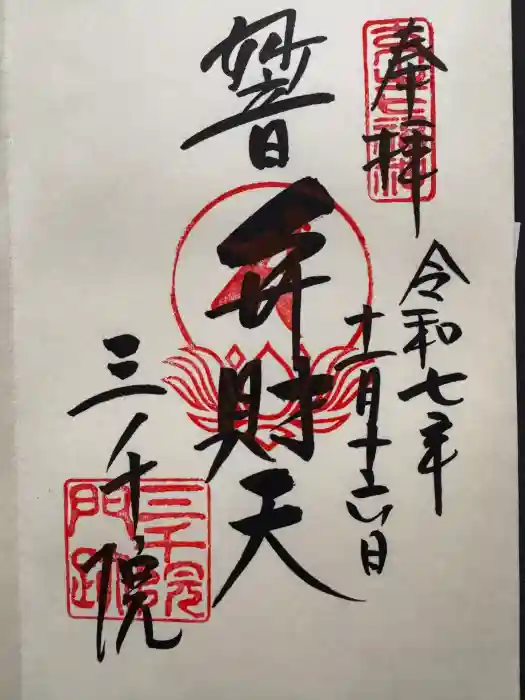 奉拝
令和七年
十一月十六日
妙音
弁財天
三千院
三千院
門跡